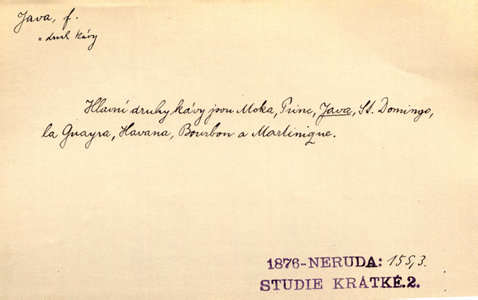 Java, f.
= druh kávy
Hlavní druhy kávy jsou Moka, Princ, Java, St. Domingo,
la Guayra, Havana, Bourbon a Martinique.
1876-NERUDA: 155,3.
STUDIE KRÁTKÉ.2.